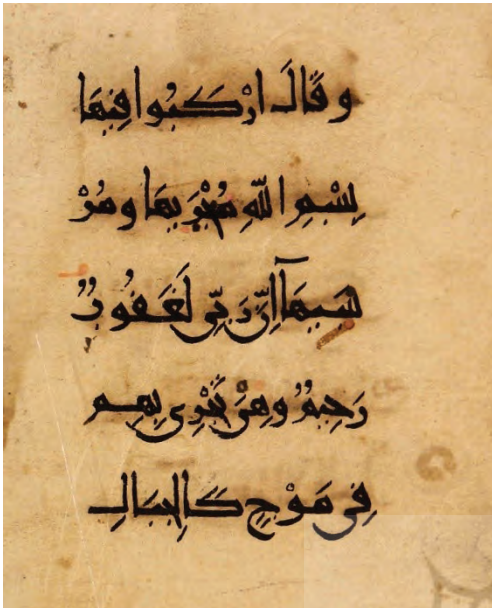 وَقَالَ ارْكَبُوا فِيهَا
بِسْمِ اللَّهِ مُجْرَيهَا وَمُرْ
سَيهَا إِنَّ رَبِّي لَغَفُورٌ
رَحِيمٌ وَهِيَ تَجْرِي بِهِم
فِي مَوْجٍ كَالْجِبَالِ